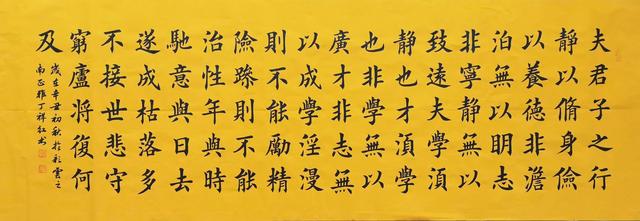 夫君子之行
靜以脩身儉
以養德非澹
泊無以明志
非寧靜無以
致遠夫學須
靜也才須學
也非學無以
廣才非志無
以成學淫漫
則不能勵精
險躁則不能
治性年與時
馳意與日去
遂成枯落多
不接世悲守
窮廬將復何
及
歲在辛丑初秋於彩雲之
南丁祥紅书